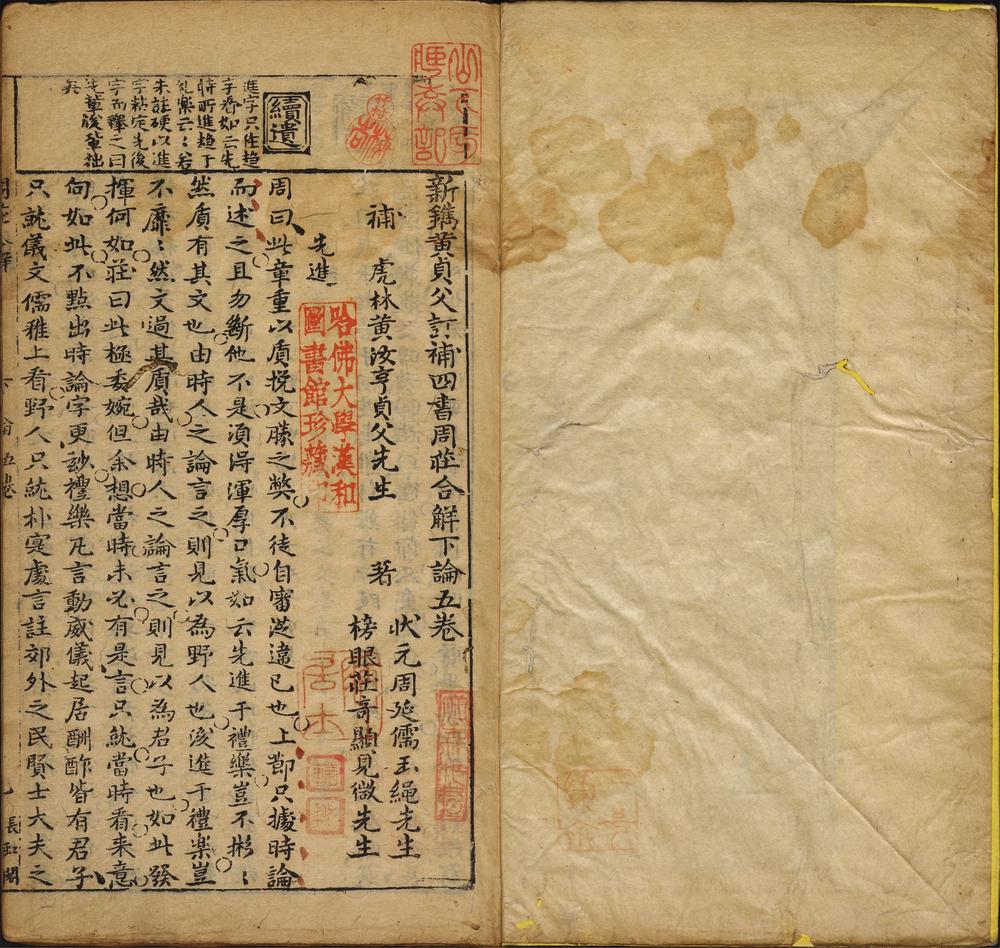 新鐫黃貞父訂補四書周莊合解下論五卷
狀元周延儒玉繩先生
補
虎林黃汝亨貞父先生
著
榜眼莊奇顯見微先生
先進
周曰此章重以質挽文勝之獘不徒自審從違已也上節只據時論
而述之且勿斷他不是須得渾厚口氣如云先進于禮樂豈不彬〻
然質有其文也由時人之論言之則見以為野人也後進于禮樂豈
不靡〻然文過其質哉由時人之論言之則見以為君子也如此發
揮何如莊曰此極委婉但余想當時未必有是言只就當時看来意
向如此不點出時論字更玅禮樂凡言動威儀起居酬酢皆有君子
只就儀文儒雅上看野人只就朴實處言註郊外之民賢士大夫之
續遺
進字只作趨
字看如云先
時所進趨于
礼樂云〻若
朱註硬以進
字粘定先後
字而釋之曰
先輩後輩拙
矣
哈佛大學漢和
圖書館珍藏印
下論五卷
長虹閣